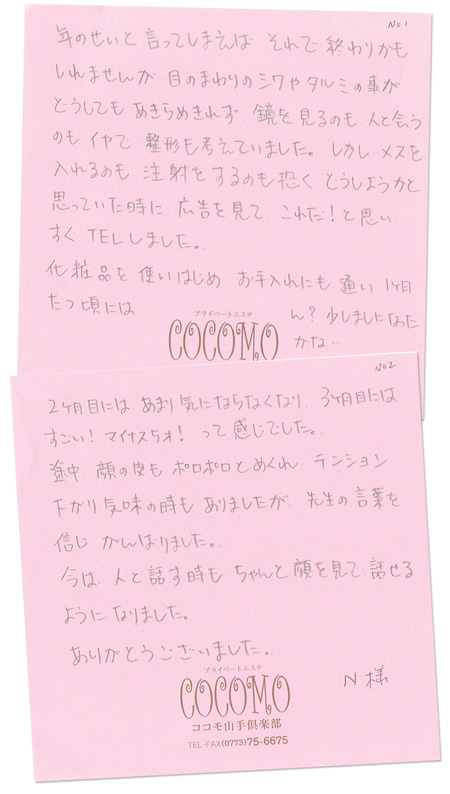 No1
年のせいと言ってしまえば それで終わりかも
しれませんが 目のまわりのシワやタルミの事が
どうしてもあきらめきれず 鏡を見るのも 人と会う
のもイヤで 整形も考えていました。しかし メスを
入れるのも 注射をするのも恐く どうしようかと
思っていた時に 広告を見て これだ!と思い
すぐ TELしました。
化粧品を使いはじめ お手入れにも通い 1ヶ月
たつ頃には ん?少しましになった
かな…
プライベートエステ
COCOMO
No2
2ヶ月目には あまり気にならなくなり 3ヶ月目には
すごい!マイナス5才!って感じでした。
途中 顔の皮もポロポロとめくれ テンション
下がり気味の時もありましたが 先生の言葉を
信じ がんばりました。
今は 人と話す時も ちゃんと顔を見て 話せる
ようになりました。
ありがとうございました。
N様
プライベートエステ
COCOMO
ココモ山手倶楽部
TEL・FAX(0773)75-6675